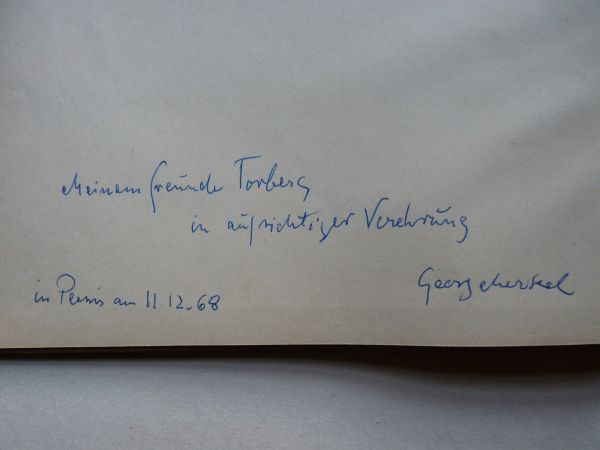 Meinem Freunde Torberg
in aufrichtiger Verehrung
in Paris am 11.12.68
Georg Merkel